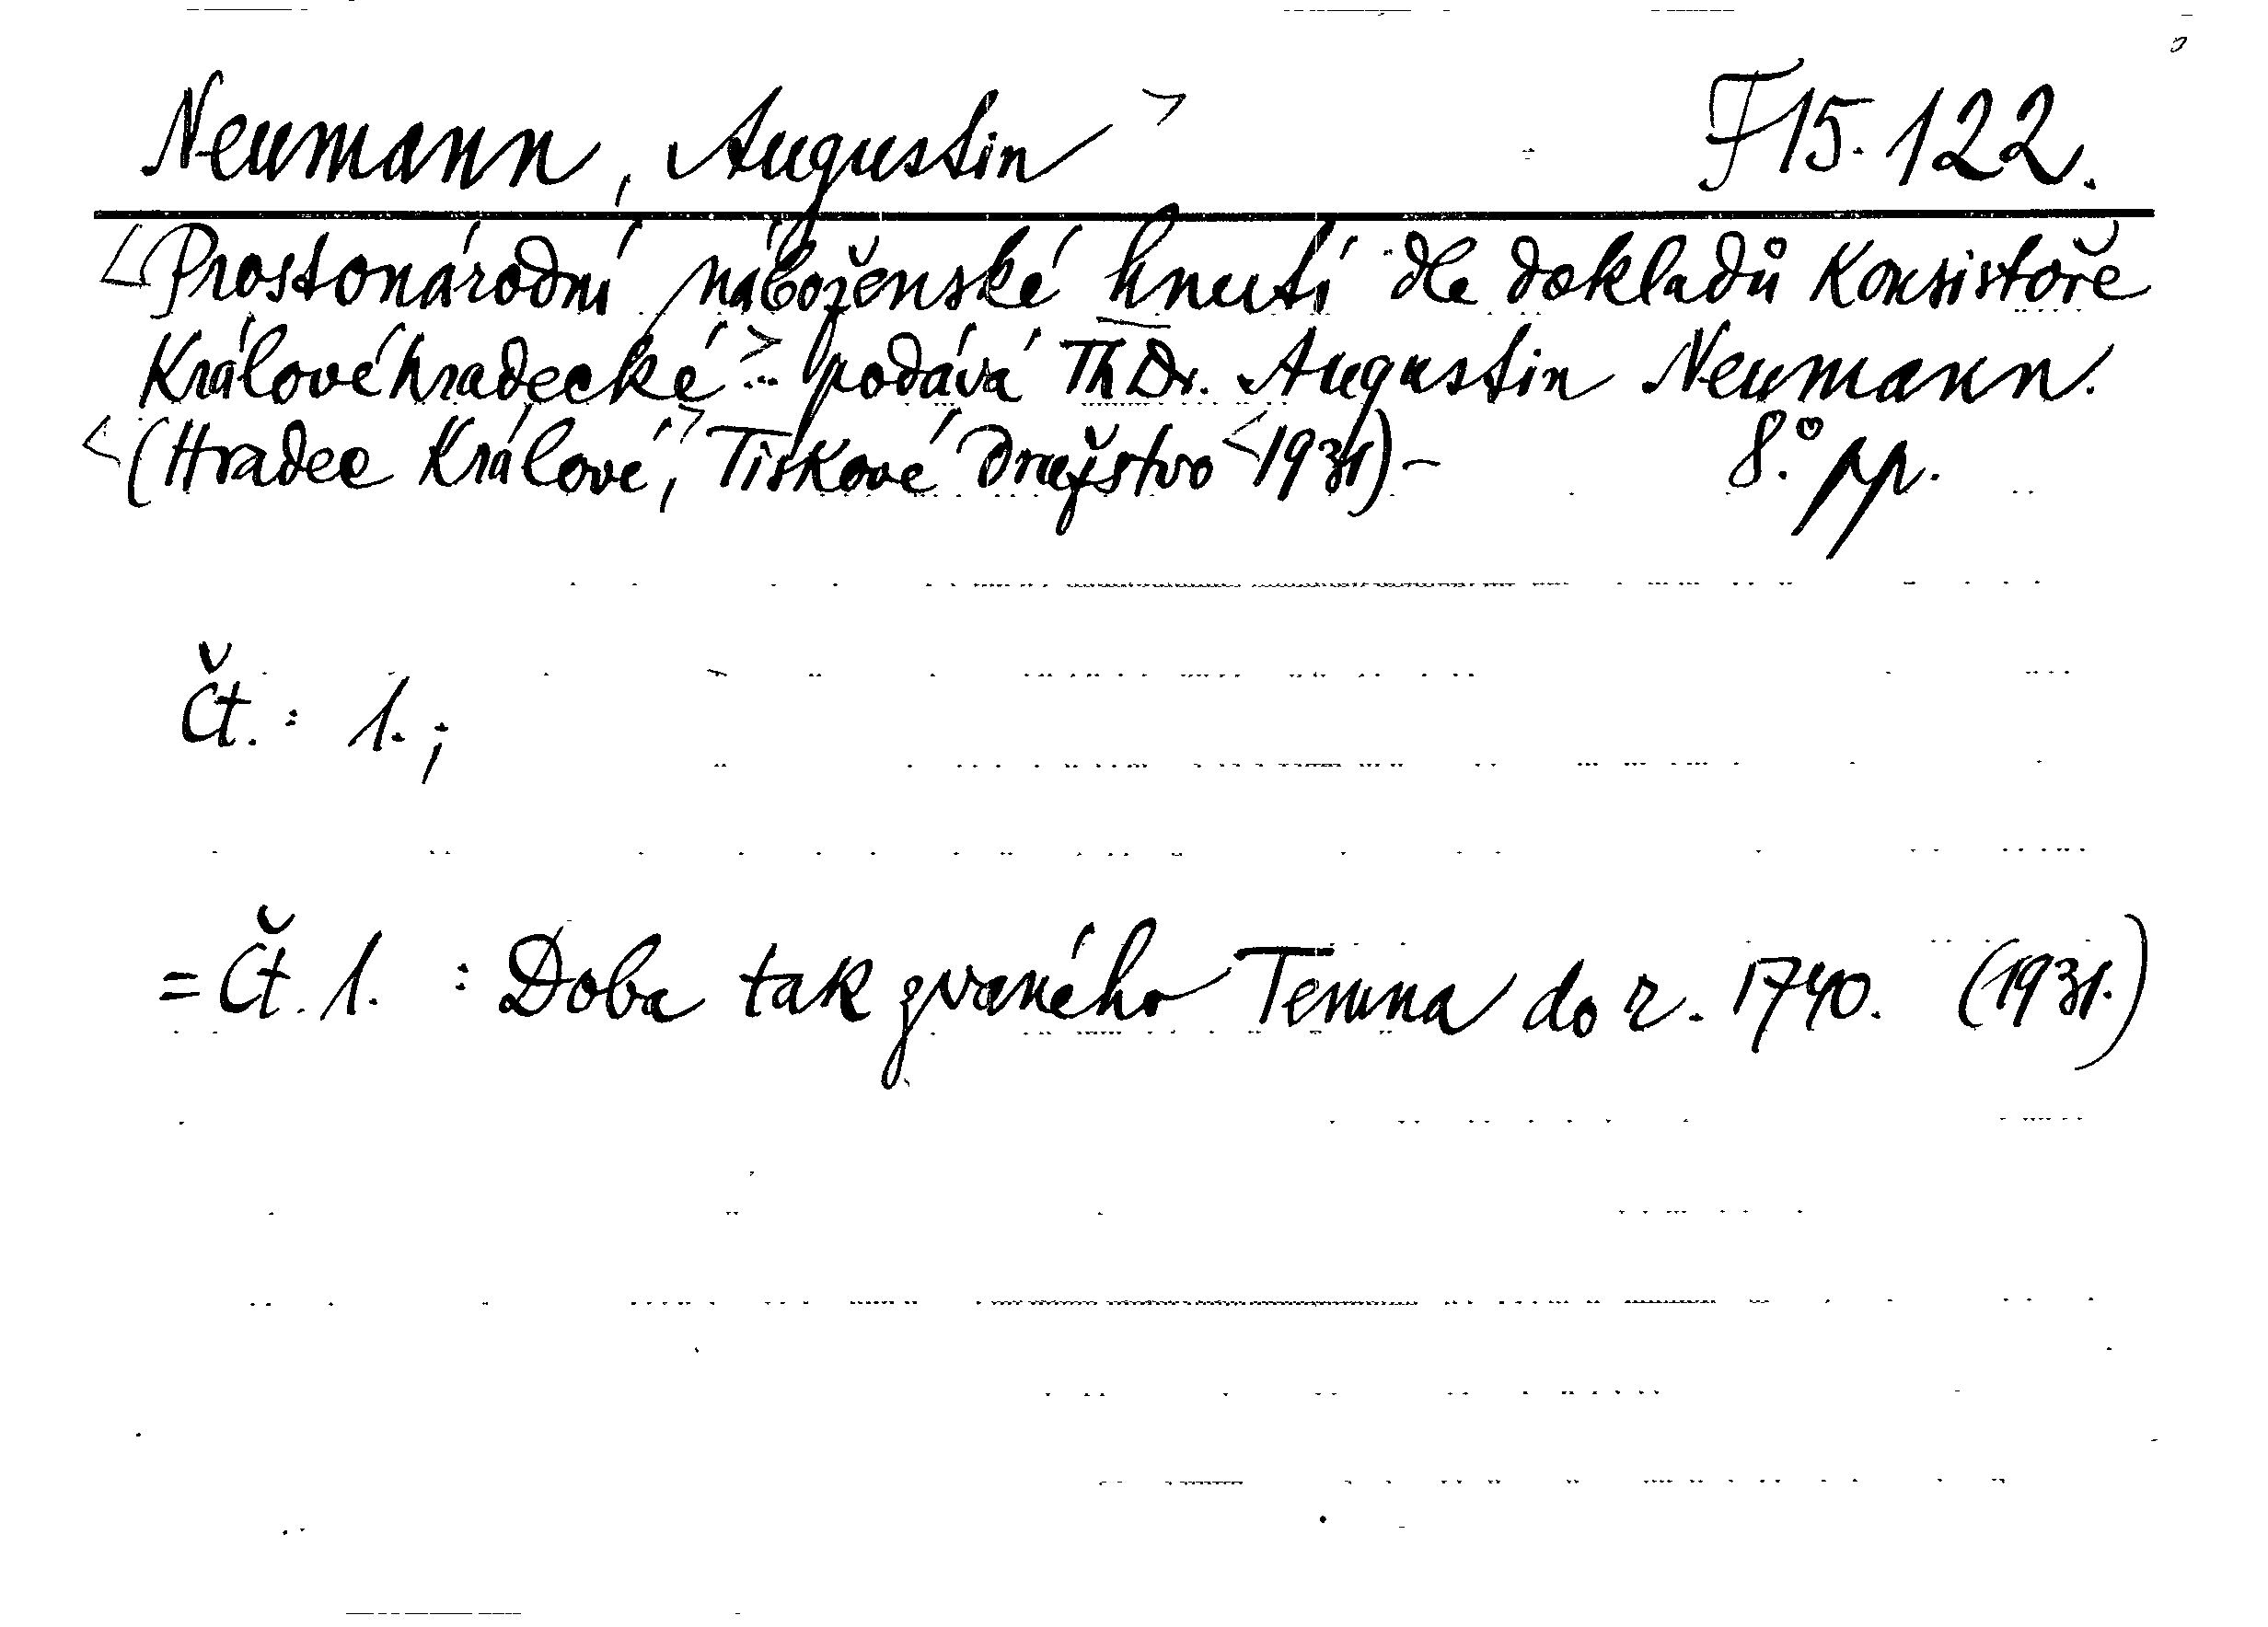 Neumann, Augustin> F 15.122.
<Prostonárodní náboženské hnutí dle dokladů Konsistoře
Královéhradecké> ... podává ThDr. Augustin Neumann.
<(Hradec Králové,> Tiskové Družstvo <1931)- 8.° pp.
Čt.: 1.;
= Čt. 1. : Doba tak zvaného Temna do r. 1740. (1931.)